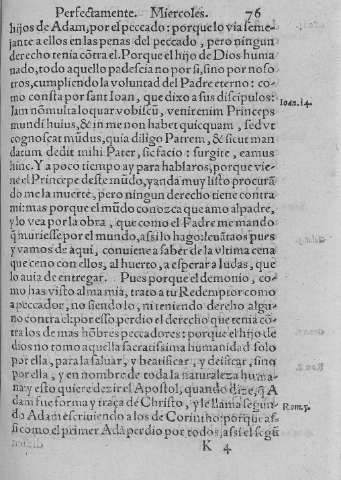 Perfectamente. Miercoles. 76
hijos de Adam, por el peccado: porque lo vìa seme-
jante a ellos en las penas del peccado, pero ningun
derecho tenia cõtra el. Porque el hijo de Dios huma
nado, todo aquello padescia no por si, sino por noso
tros, cumpliendo la voluntad del Padre eterno: co-
mo consta por sant Ioan, que dixo a sus discipulos:
Ioan. 14.
Iam nõ multa loquar vobiscũ, venit enim Princeps
mundi huius, & in me non habet quicquam, sed vt
cognoscat mũdus, quia diligo Patrem, & sicut man
datum dedit mihi Pater, sic facio: surgite, eamus
hinc. Y a poco tiempo ay para hablaros, porque vie-
ne el Principe deste mũdo, y anda muy listo procurã
do me la muerte, pero ningun derecho tiene contra
mi: mas porque el mũdo conozca que amo al padre,
y lo vea por la obra, que como el Padre me mando
q̃ muriesse por el mundo, assi lo hago: leuãtaos pues
y vamos de aqui, conuiene a saber de la vltima cena
que ceno con ellos, al huerto, a esperar a Iudas, que
lo auia de entregar. Pues porque el demonio, co-
mo has visto alma mia, trato a tu Redemptor como
a peccador, no siendo lo, ni teniendo derecho algu-
no contra el: por esso perdio el derecho que tenia cõ
tra los de mas hõbres peccadores: porque el hijo de
dios no tomo aquella sacratissima humanidad solo
por ella, para la saluar, y beatificar, y deificar, sino
por ella, y en nombre de toda la naturaleza huma
na: y esto quiere dezir el Apostol, quando dize, q̃ A
dam fue forma y traça de Christo, y le llama segun-
Rom. 5.
do Adam escriuiendo a los de Corintho: porque as-
si como el primer Adã perdio por todos, assi el segũ
K 4